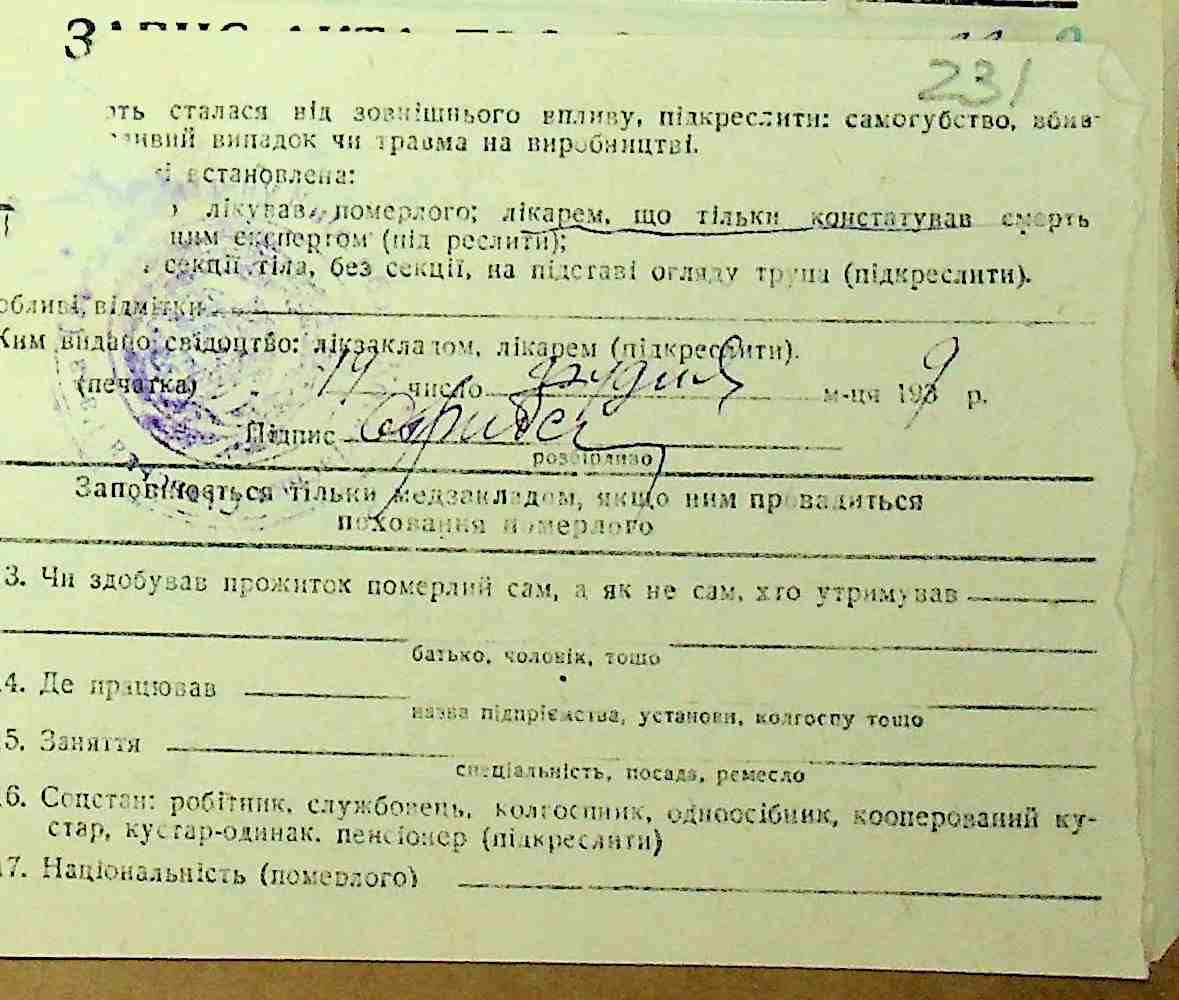 231
сталася від зовнішнього впливу, підкреслити: самогубство, вбив-
випадок чи травма на виробництві.
встановлена:
лікував, померлого; лікарем, що тільки констатував смерть
експертом (підкреслити);
секції тіла, без секції, на підставі огляду трупа (підкреслити).
відмітки
Ким видано свідоцтво: лікзакладом, лікарем (підкреслити).
(печатка) 19 число грудня м-ця 1939 р.
Підпис
розбірливо
Заповнюється тільки медзакладом, якщо ним провадиться
поховання померлого
3. Чи здобував прожиток померлий сам, а як не сам, хто утримував
батько, чоловік, тощо
4. Де працював
назва підприємства, установи, колгоспу тощо
5. Заняття
спеціальність, посада, ремесло
6. Соцстан: робітник, службовець, колгоспник, одноосібник, кооперований ку-
стар, кустар-одинак, пенсіонер (підкреслити)
7. Національність (померлого)